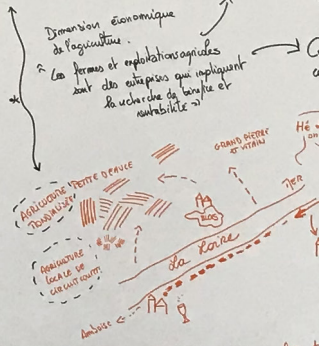 Dimension économique
de l'agriculture.
"Les fermes et exploitations agricoles
sont des entreprises qui impliquent
la recherche de bénéfice et
rentabilité"
PETITE BEAUCE
AGRICULTURE
GRAND PIERRE
ET VITAIN
TER
Hé
BLOIS
La Loire
AGRICULTURE
LOCALE DE
CIRCUIT COURT
Amboise